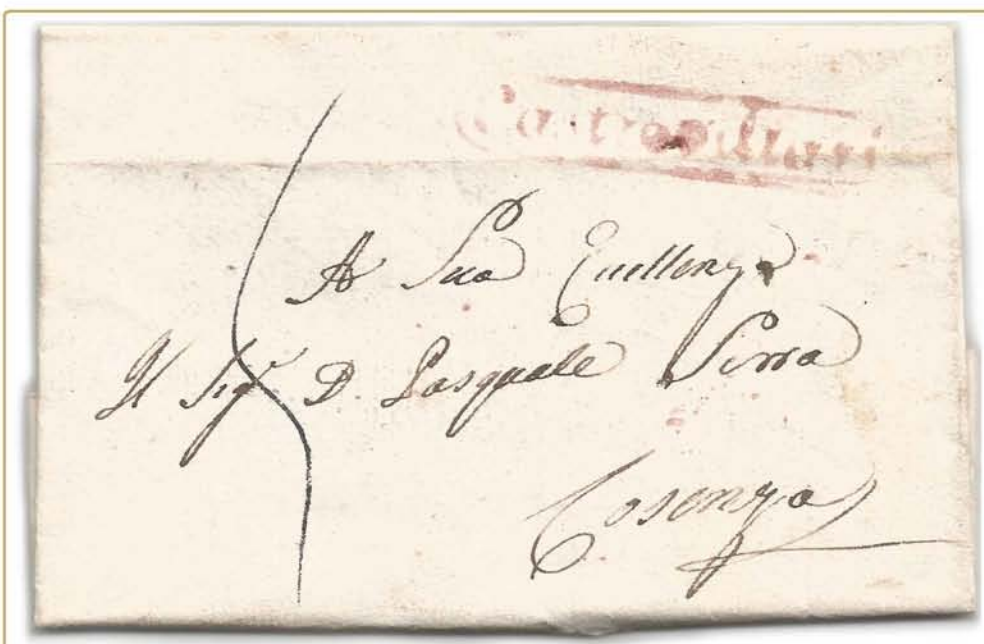 Castrovillari
A Sua Eccellenza
Il Sigr D. Pasquale Serra
Cosenza